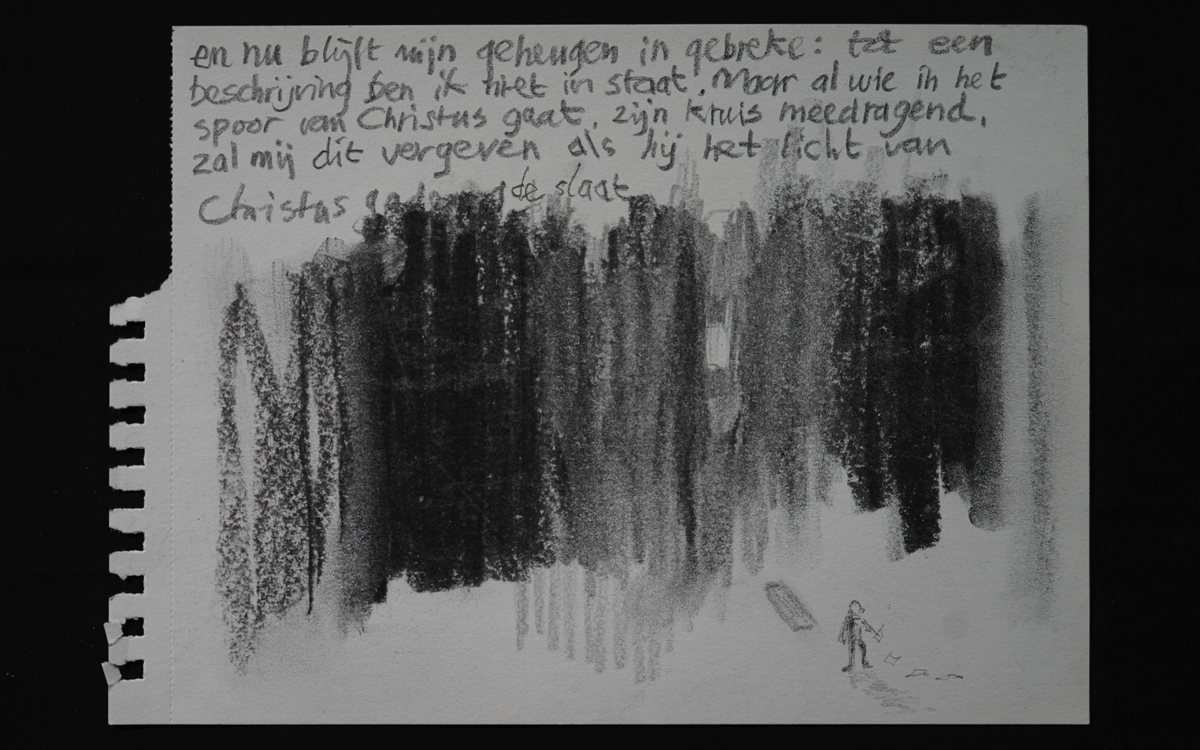 en nu blijft mijn geheugen in gebreke: tot een
beschrijving ben ik niet in staat. Maar al wie in het
spoor van Christus gaat, zijn kruis meedragend,
zal mij dit vergeven als hij het licht van
Christus de slaat